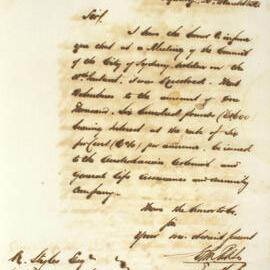 Sir,
I have the honor to inform
you that at a Meeting of the Council
of the City of Sydney holden on the
it was Resolved That
Debentures to the amount of One
Thousand Six hundred pounds (£1600
bearing interest at the rate of Six
per Cent (6%) per annum be issued
to the Australasian Colonial and
General Life Assurance and Annuity
Company.
I have the honor to be,
Sir
Your
R. Styles Esqr